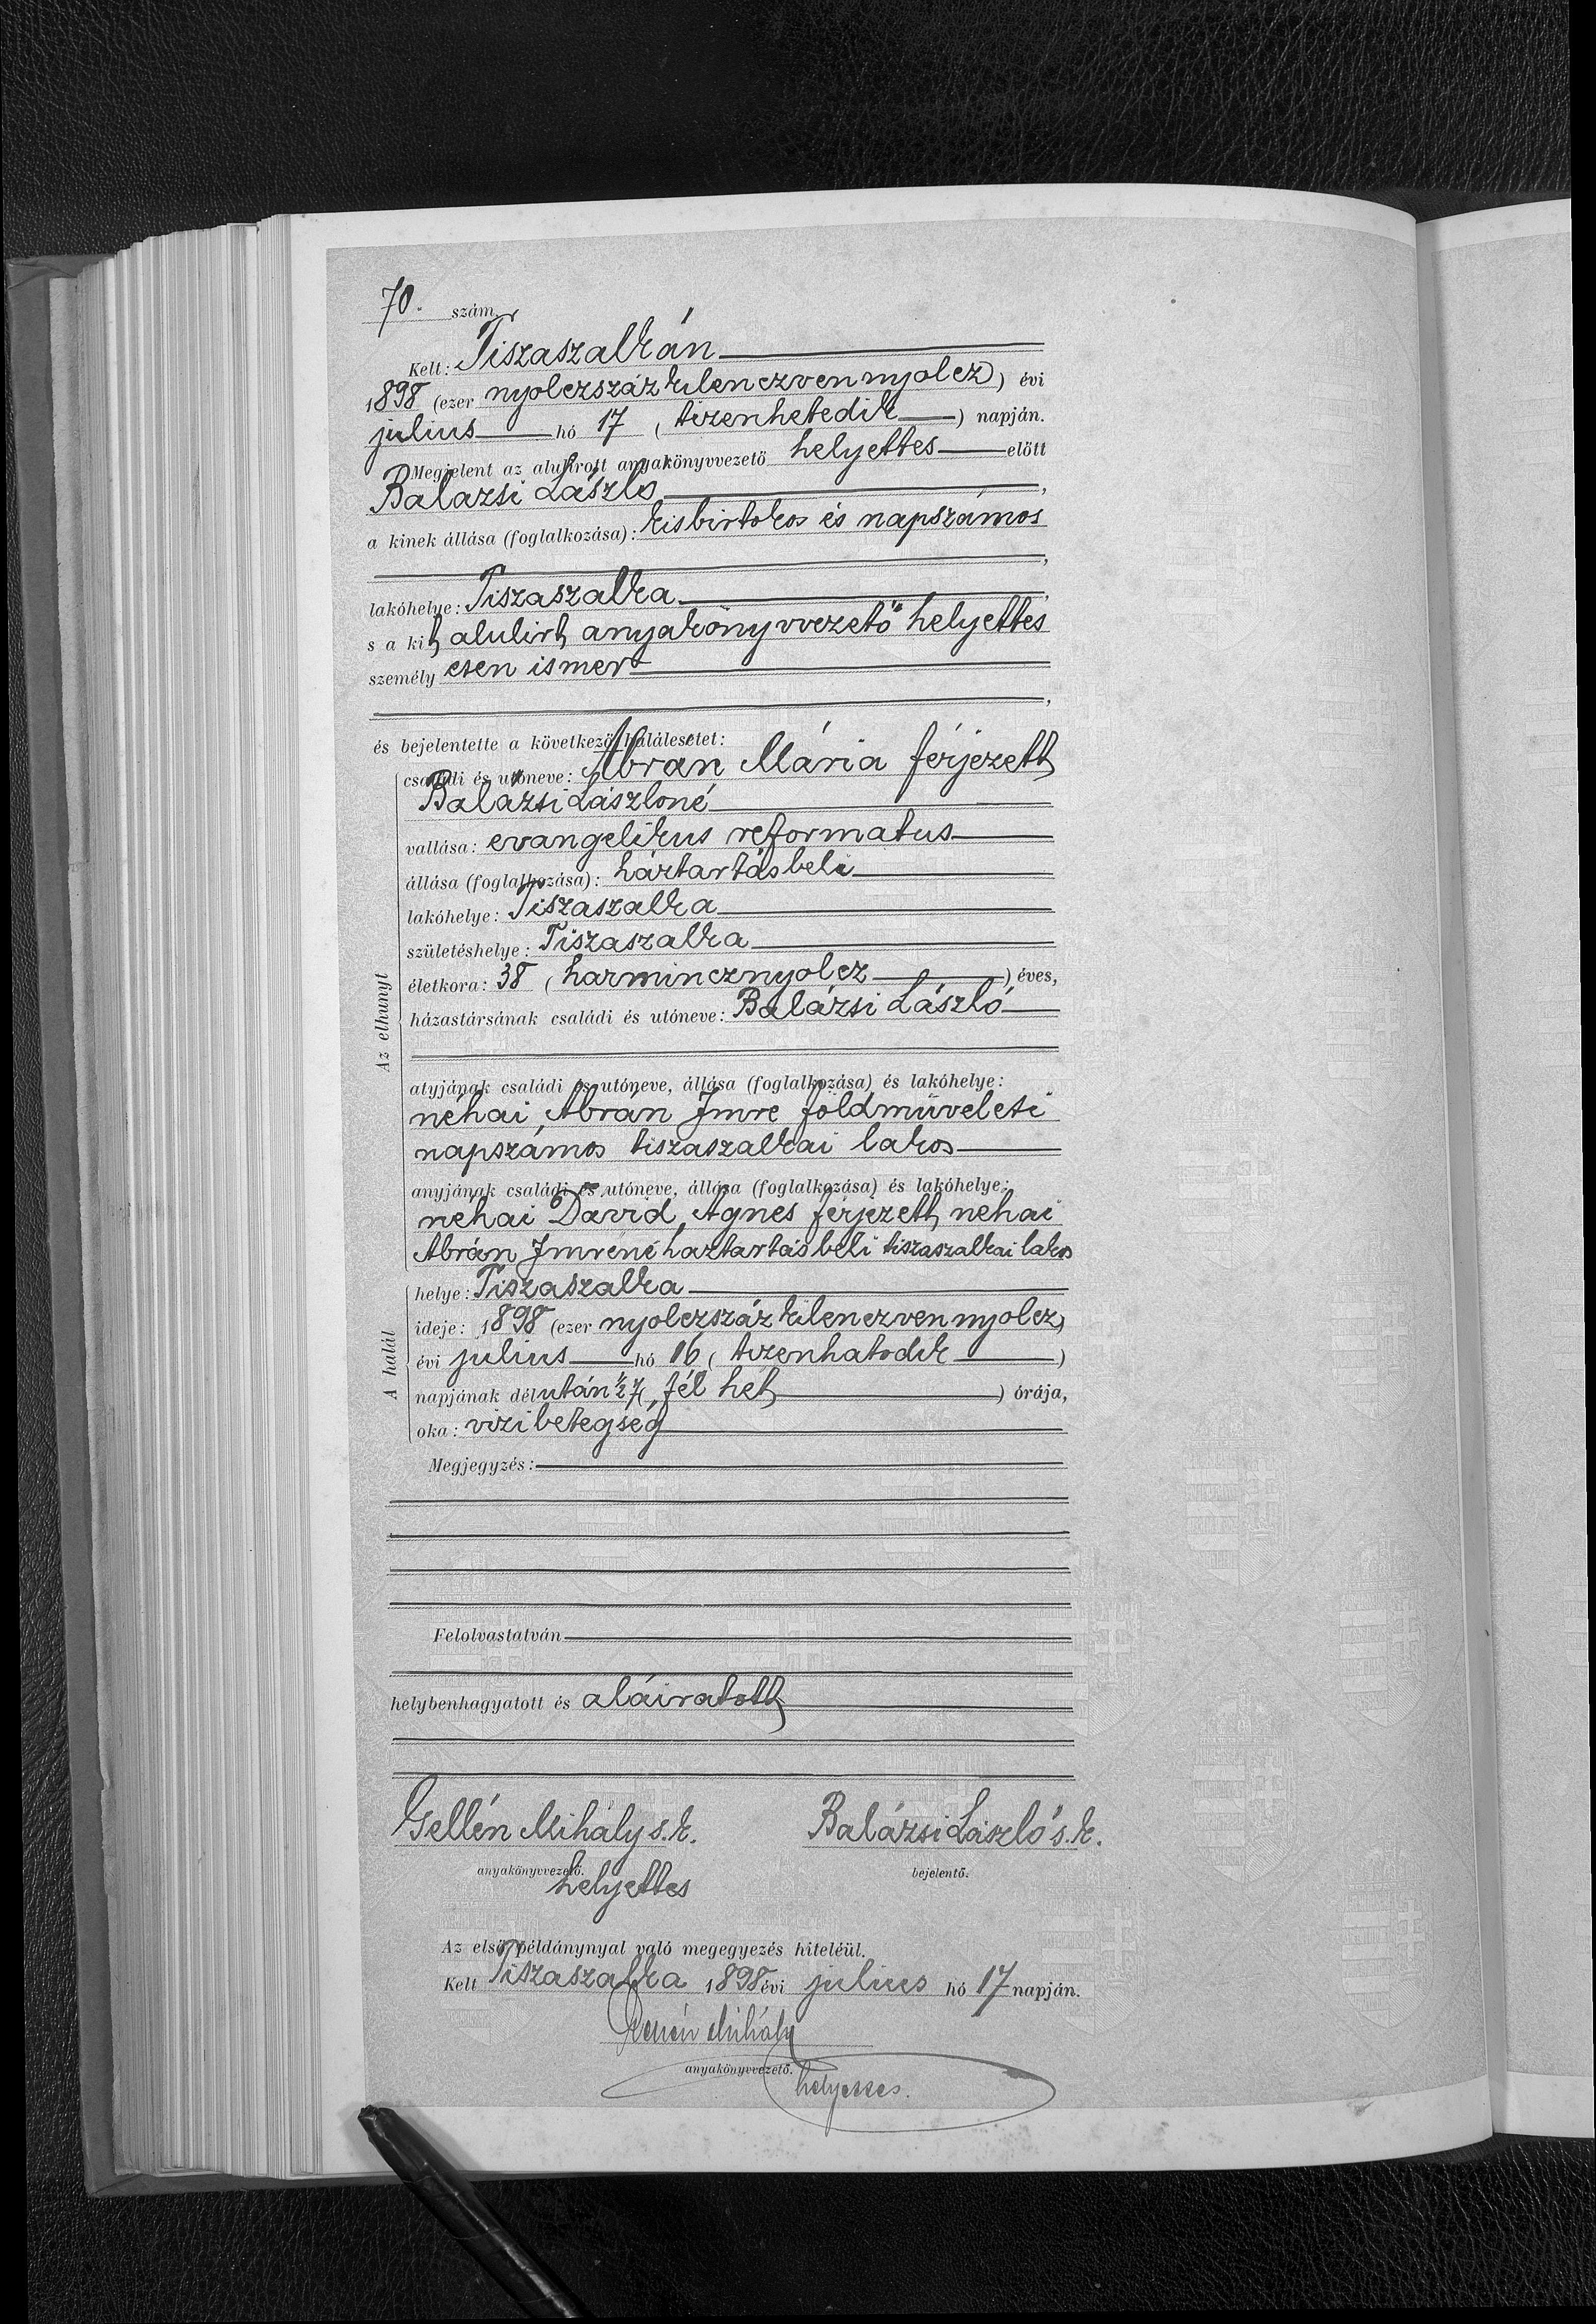 70. szám.
Kelt: Tiszaszalkán
1898 (ezer nyolczszázkilenczvennyolcz) évi
julius hó 17 (tizenhetedik) napján.
Megjelent az alulirott anyakönyvvezető helyettes előtt
Balázsi László,
a kinek állása (foglalkozása): kisbirtokos és napszámos
,
lakóhelye: Tiszaszalka,
s a kit alulirt anyakönyvvezető helyettes
személyesen ismer
,
és bejelentette a következő halálesetet:
Az elhunyt
családi és utóneve: Ábrán Mária férjezett
Balázsi Lászloné
vallása: evangelikus reformatus
állása (foglalkozása): háztartásbeli
lakóhelye: Tiszaszalka
születéshelye: Tiszaszalka
életkora: 38 (harmincznyolcz) éves,
házastársának családi és utóneve: Balázsi László
atyjának családi és utóneve, állása (foglalkozása) és lakóhelye:
néhai Ábrán Imre földmüvelesi
napszámos tiszaszalkai lakos
anyjának családi és utóneve, állása (foglalkozása) és lakóhelye:
néhai Dávid Ágnes férjezett néhai
Ábrán Imréné háztartásbeli tiszaszalkai lakos
A halál
helye: Tiszaszalka
ideje: 1898 (ezer nyolczszázkilenczvennyolcz)
évi julius hó 16 (tizenhatodik)
napjának délután ½7 (fél hét) órája,
oka: vizibetegség
Megjegyzés:
Felolvastatván
helybenhagyatott és aláiratott
Gellén Mihály s. k. Balázsi László s. k.
anyakönyvvezető. bejelentő.
helyettes
Az első példánynyal való megegyezés hiteléül.
Kelt Tiszaszalka 1898 évi julius hó 17 napján.
Gellén Mihály
anyakönyvvezető.
helyettes.